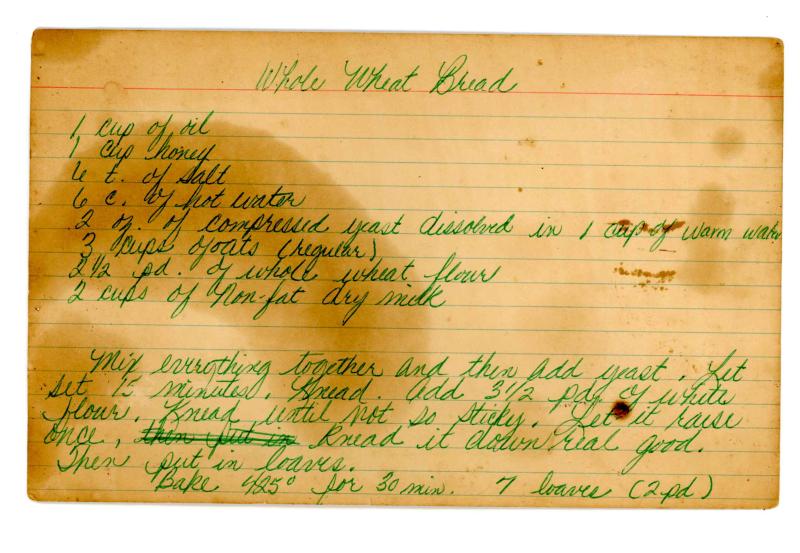 Whole Wheat Bread
1 cup of oil
1 cup honey
6 t. of salt
6 c. of hot water
2 oz. of compressed yeast dissolved in 1 cup of warm water
3 cups of oats (regular)
2 1/2 pd. of whole wheat flour
2 cups of Non-fat dry milk
Mix everything together and then add yeast. Let
set 15 minutes. Knead. Add 3 1/2 pds of white
flour. Knead until not so sticky. Let it raise
once, then put in Knead it down real good.
Then put in loaves.
Bake 425° for 30 min. 7 loaves (2 pd)